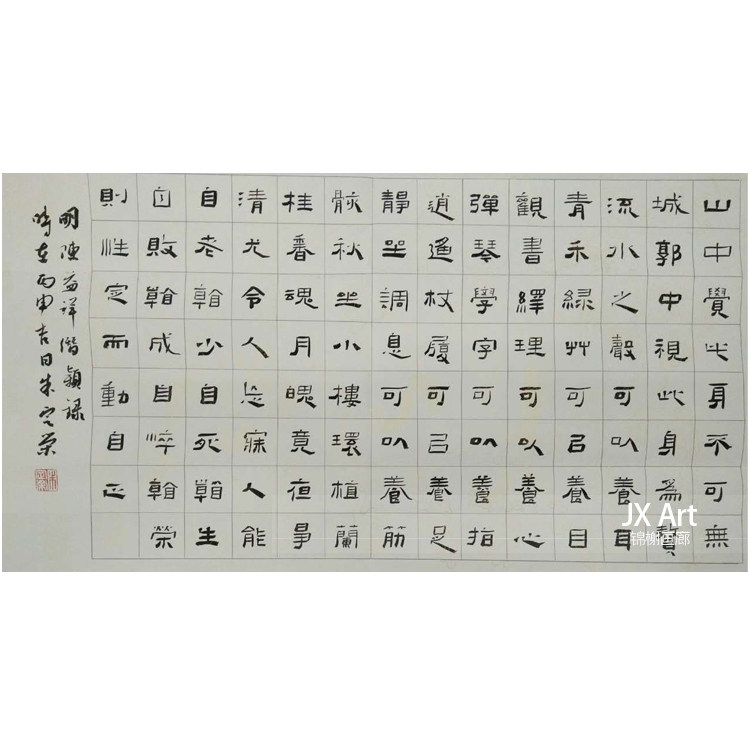 山中覺此身不可無
城郭中視此身為贅
流水之聲可以養耳
青禾綠艸可以養目
觀書繹理可以養心
彈琴學字可以養指
逍遙杖履可以養足
靜坐調息可以養筋
骸秋坐小樓環植蘭
桂香魂月魄竟夜事
清尤令人忘寐人能
自老看少自死看生
自敗看成自悴看榮
則性定而動自正
明陳益祥潛穎錄
時在丙申吉日朱定榮
JX Art
锦榭画廊